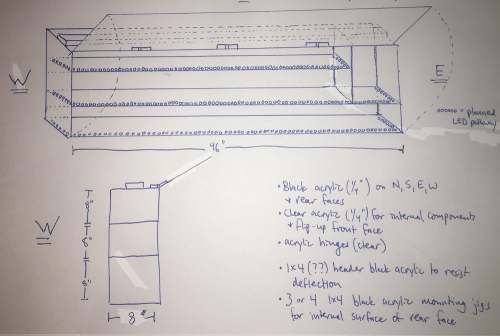 W
E
ooooo = planned
LED pathway
96"
W
8"
8"
8"
8"
• Black acrylic (1/4") on N, S, E, W
+ rear faces
• Clear acrylic (1/4") for internal components
+ flip-up front face
• acrylic hinges (clear)
• 1x4 (??) header black acrylic to resist
deflection
• 3 or 4 1x4 black acrylic mounting jigs
for internal surface of rear face